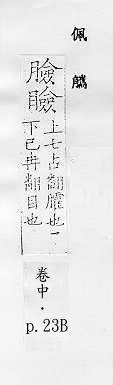 佩觿
臉瞼
上七占翻臛也一
下己冉翻目也
卷中・
p.23B